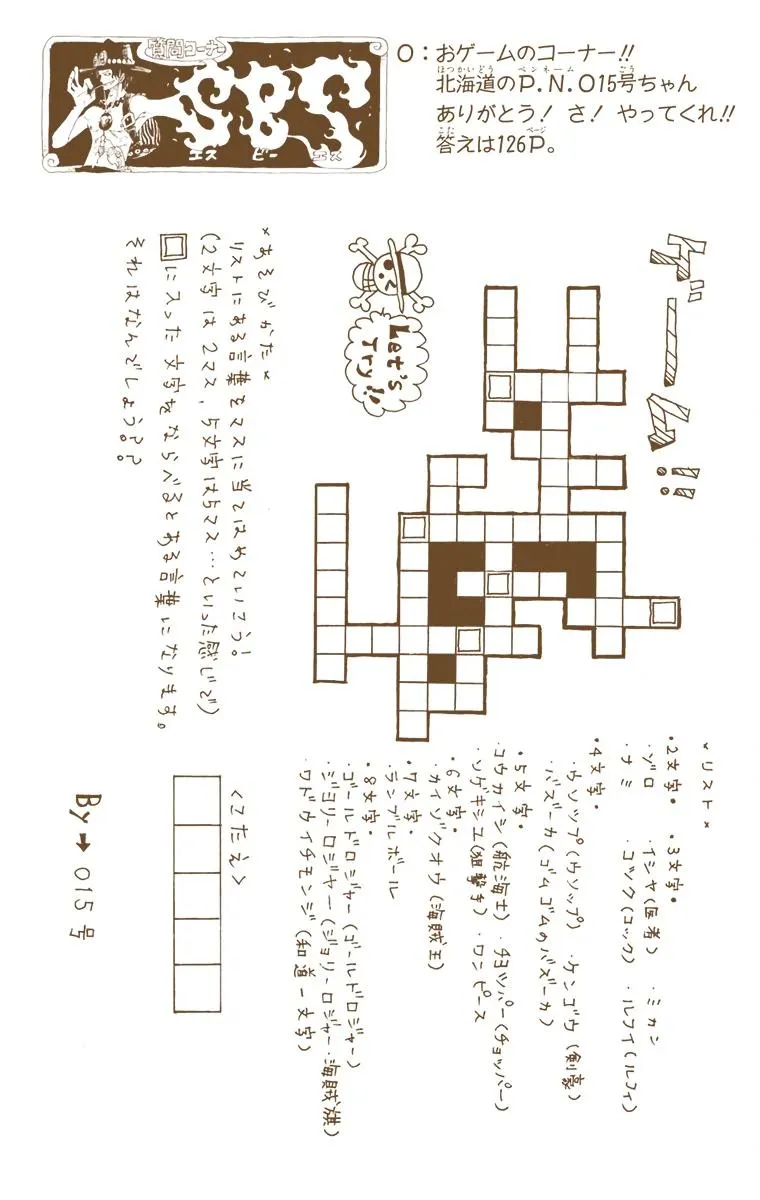 質問コーナー
SBS
エス ビー エス
O：おゲームのコーナー!!
北海道のP.N.015号ちゃん
ありがとう！ さ！ やってくれ!!
答えは126P。
ゲーム!!
Let's
Try!!
×あそびかた×
リストにある言葉をマスに当てはめていこう!
(2文字は2マス、5文字は5マス…といった感じで)
□に入った文字をならべるとある言葉になります。
それはなんでしょう??
×リスト×
・2文字・
・ゾロ
・ナミ
・3文字・
・イシャ(医者)
・ミカン
・コック(コック)
・ルフイ(ルフィ)
・4文字・
・ウソップ(ウソップ)
・ケンゴウ(剣豪)
・バズーカ(ゴムゴムのバズーカ)
・5文字・
・コウカイシ(航海士)
・チョッパー(チョッパー)
・ソゲキシュ(狙撃手)
・ワンピース
・6文字・
・カイゾクオウ(海賊王)
・7文字・
・ランブルボール
・8文字・
・ゴールドロジャー(ゴールドロジャー)
・ジョリーロジャー(ジョリーロジャー・海賊旗)
・ワドウイチモンジ(和道一文字)
<こたえ>
By→015号